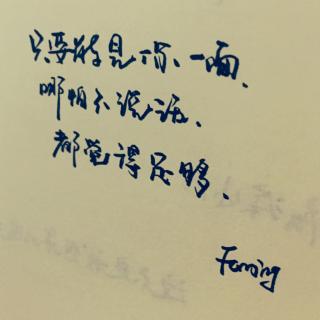 只要能见你一面、
哪怕不说话、
都觉得足够、